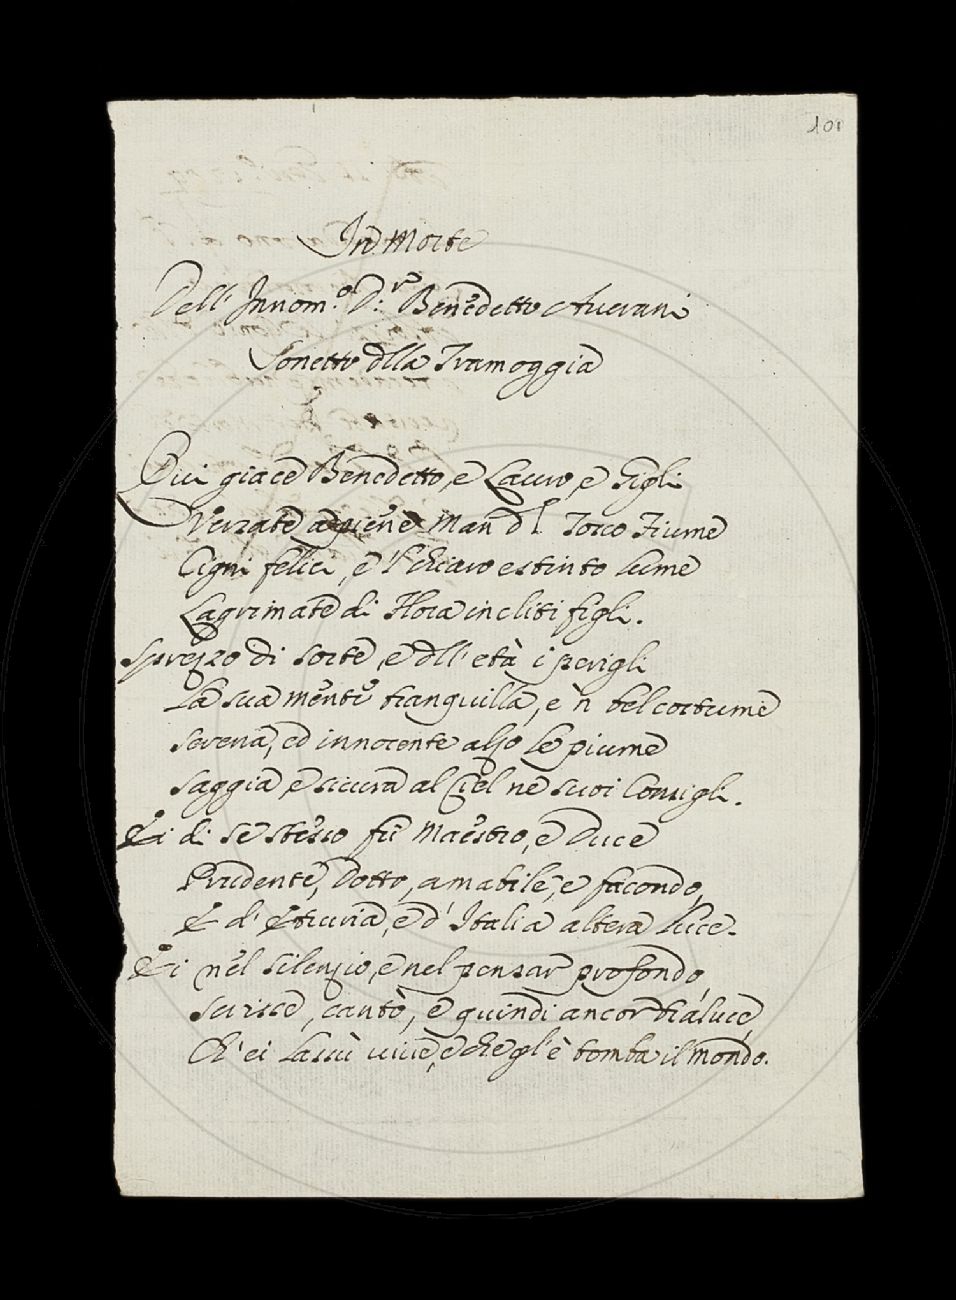 101
In Morte
Dell' Innom.º D.r Benedetto Averani
Sonetto dlla Tramoggia
Qui giace Benedetto, e Lauro, e Gigli
Versate a piene man dl Tosco Fiume
Cigni felici, e 'l chiaro estinto lume
Lagrimate di Flora incliti figli.
Sprezzo di sorte, e dll' età i perigli
La sua mente tranquilla, e 'n bel costume
Serena, ed innocente alzo le piume
Saggia e sicura al Ciel ne suoi Consigli.
Ei di se stesso fu Maestro, e Duce
Prudente, Dotto, amabile, e facondo,
E d' Etruria, e d' Italia altera luce.
Ei nel silenzio, e nel pensar profondo,
Scrisse, cantò, e quindi ancor traluce,
Ch' ei lassù vive, e che gl' è tomba il mondo.